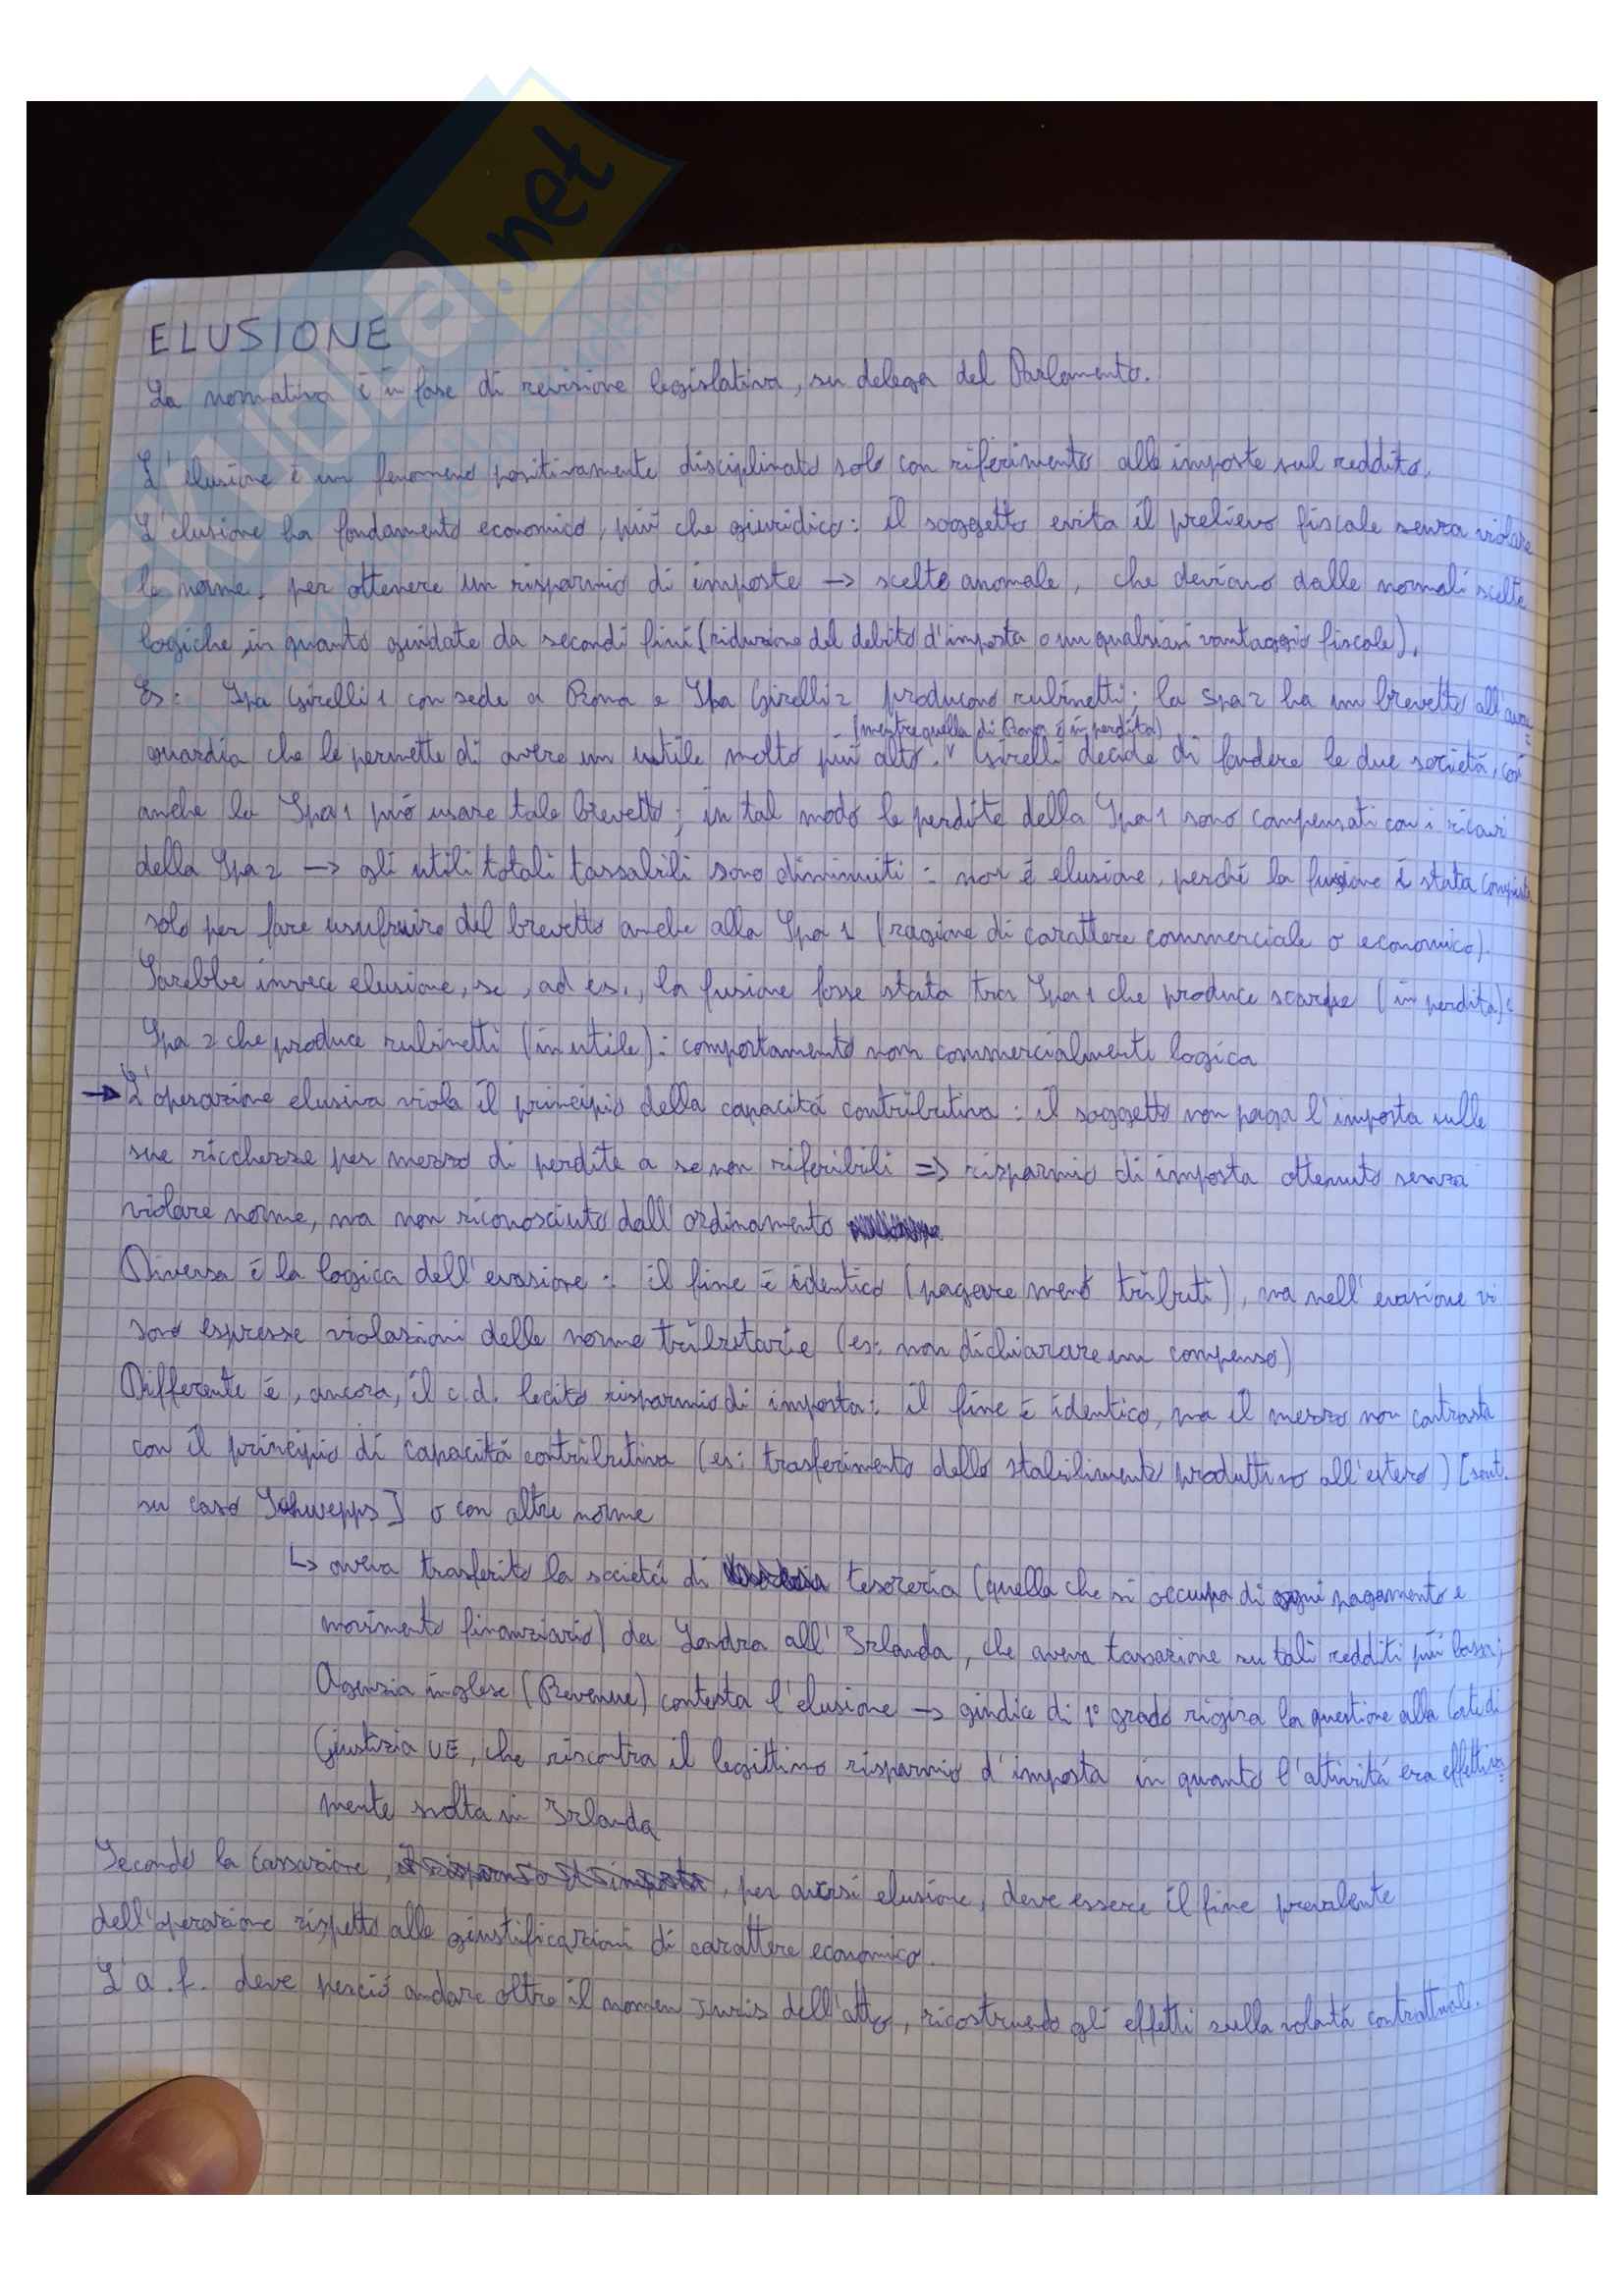 ELUSIONE
La normativa è in fase di revisione legislativa, su delega del Parlamento.
L'elusione è un fenomeno positivamente disciplinato solo con riferimento alle imposte sul reddito.
L'elusione ha fondamento economico, più che giuridico: il soggetto evita il prelievo fiscale senza violare
le norme, per ottenere un risparmio di imposte → scelte anomale, che deviano dalle normali scelte
logiche, in quanto guidate da secondi fini (riduzione del debito d'imposta o un qualsiasi vantaggio fiscale).
Es: Spa Girelli 1 con sede a Roma e Spa Girelli 2 producono rubinetti; la Spa 2 ha un brevetto all'avan
(mentre quella di Roma è in perdita)
guardia che le permette di avere un utile molto più alto. Girelli decide di fondere le due società, così
anche la Spa 1 può usare tale brevetto; in tal modo le perdite della Spa 1 sono compensati con i ricavi
della Spa 2 → gli utili totali tassabili sono diminuiti: non è elusione, perché la fusione è stata compiuta
solo per fare usufruire del brevetto anche alla Spa 1 (ragione di carattere commerciale o economico).
Sarebbe invece elusione, se, ad es., la fusione fosse stata tra Spa 1 che produce scarpe (in perdita) e
Spa 2 che produce rubinetti (in utile): comportamento non commercialmente logico
→ L'operazione elusiva viola il principio della capacità contributiva: il soggetto non paga l'imposta sulle
sue ricchezze per mezzo di perdite a se non riferibili => risparmio di imposta ottenuto senza
violare norme, ma non riconosciuto dall'ordinamento
Diversa è la logica dell'evasione: il fine è identico (pagare meno tributi), ma nell'evasione vi
sono espresse violazioni delle norme tributarie (es: non dichiarare un compenso)
Differente è, ancora, il c.d. lecito risparmio di imposta: il fine è identico, ma il mezzo non contrasta
con il principio di capacità contributiva (es: trasferimento dello stabilimento produttivo all'estero) [sent.
su caso Schwepps] o con altre norme
↳ aveva trasferito la società di tesoreria (quella che si occupa di ogni pagamento e
movimento finanziario) da Londra all'Irlanda, che aveva tassazione su tali redditi più bassa;
Agenzia inglese (Revenue) contesta l'elusione → giudice di 1° grado rigira la questione alla Corte di
Giustizia UE, che riscontra il legittimo risparmio d'imposta in quanto l'attività era effettiva
mente svolta in Irlanda
Secondo la Cassazione, per aversi elusione, deve essere il fine prevalente
dell'operazione rispetto alle giustificazioni di carattere economico.
L'a.f. deve perciò andare oltre il nomen iuris dell'atto, ricostruendo gli effetti sulla volontà contrattuale.
.net